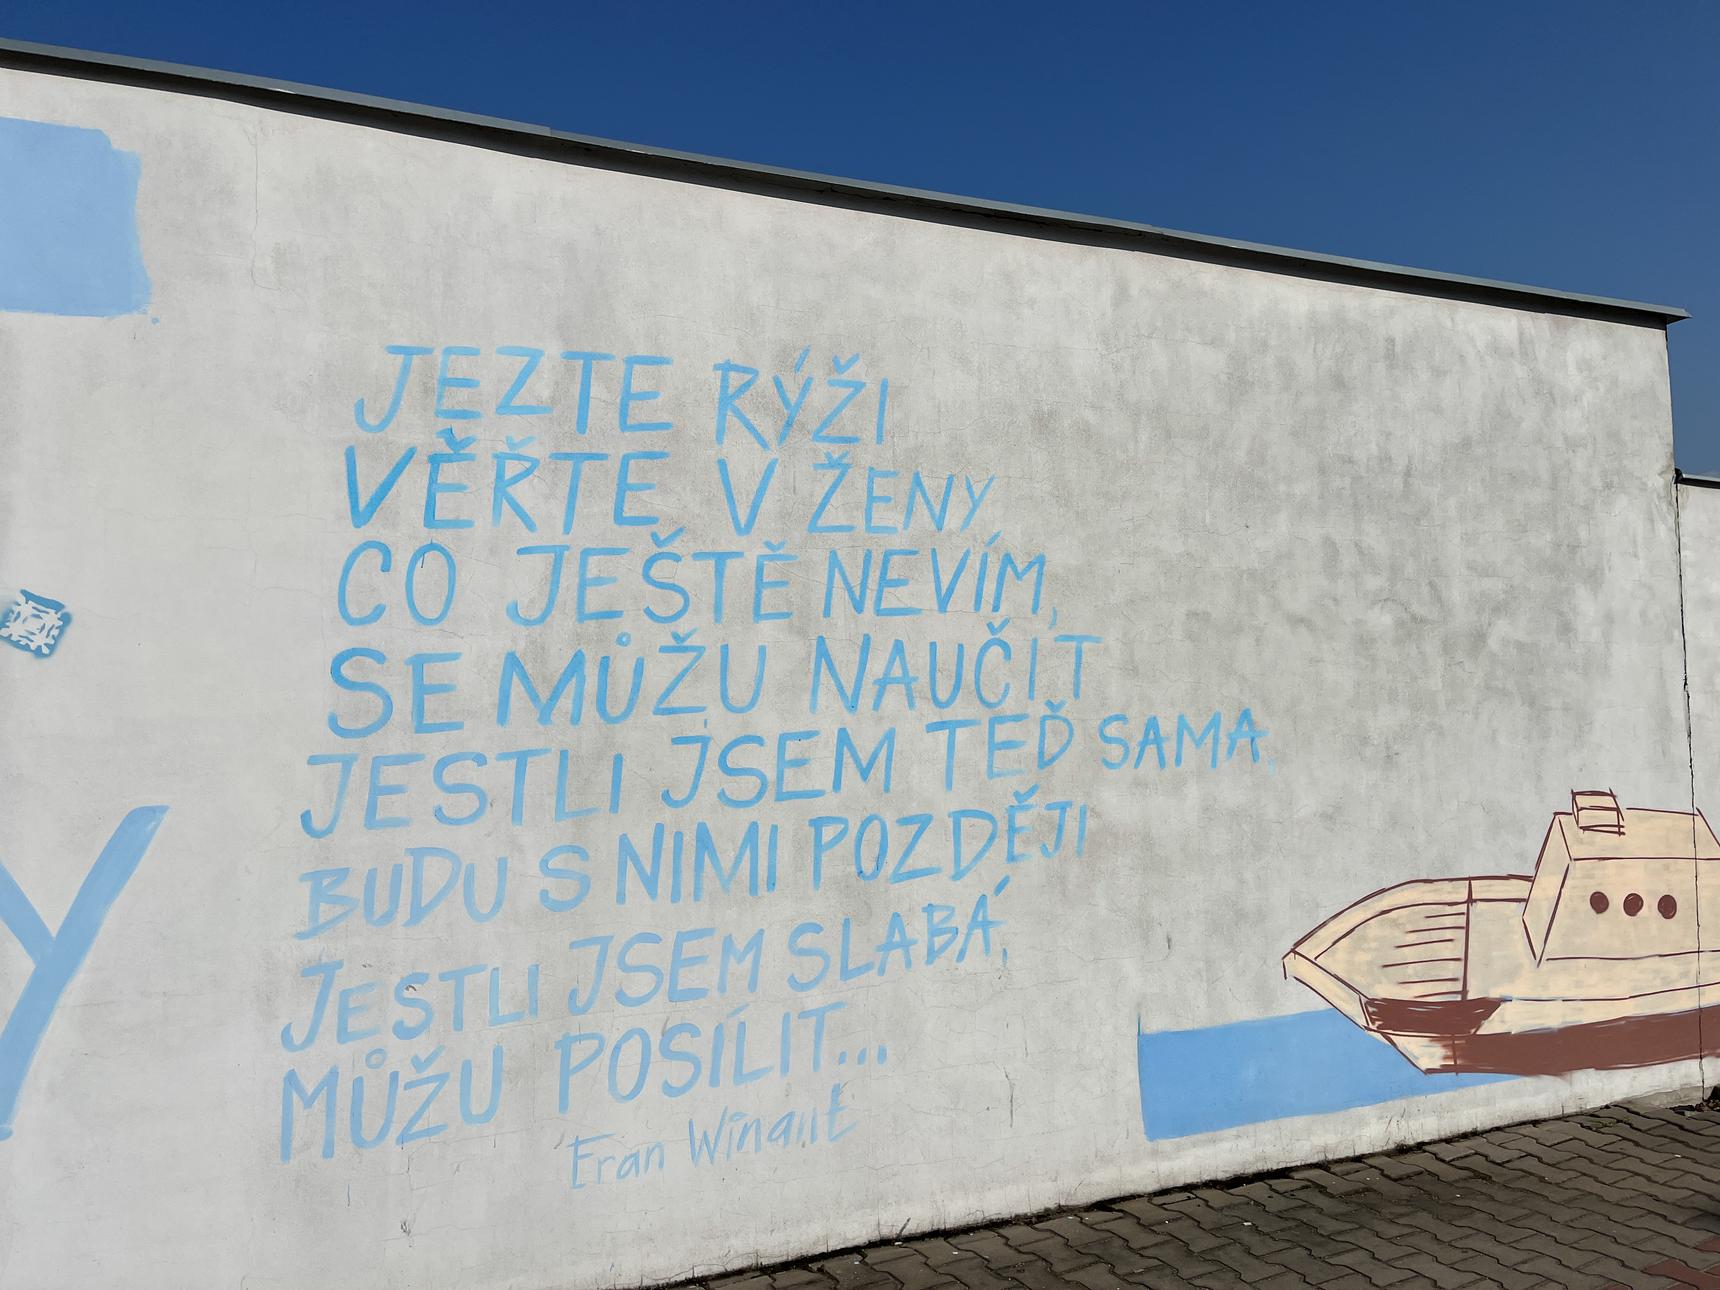 JEZTE RÝŽI
VĚŘTE V ŽENY
CO JEŠTĚ NEVÍM,
SE MŮŽU NAUČIT
JESTLI JSEM TEĎ SAMA,
BUDU S NIMI POZDĚJI
JESTLI JSEM SLABÁ,
MŮŽU POSÍLIT...
Fran Winant